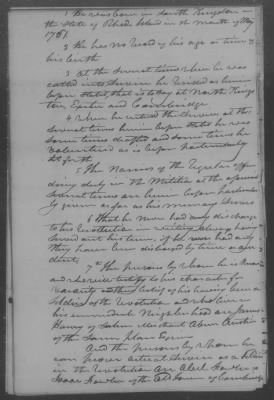 1 He was born in South Kingston in
the State of Rhode Island in the month of May
1761.
2 He has no record of his age or time of
his birth
3 At the several times when he was
called into Service he resided as herein
before stated that is to say at North Kings
ton, Exeter and Cambridge
4 When he entered the Service at the
several times herein before stated he was
some times drafted and some times he
volunteered as is before particularly
set forth
5 The Names of the regular offi
duty in the Militia at the
several times are herein before particular
ly given as far as his memory serves
6 That he never had any discharge
to his recollection in writing always having
served out his time. if he ever had any
they have been destroyed by time or acci
dent.
7th The persons by whom he is known
and who can testify to his character for
veracity and belief of his having been a
Soldier of the Revolution and who live in
his immediate Neighborhood are James
Harvey of Salem Merchant Abner Austin
of the Same place Esqr
And the persons by whom he
can prove actual Service as a Soldier
in the Revolution are Abel Fowler &
Isaac Fowler of the of Cambridge